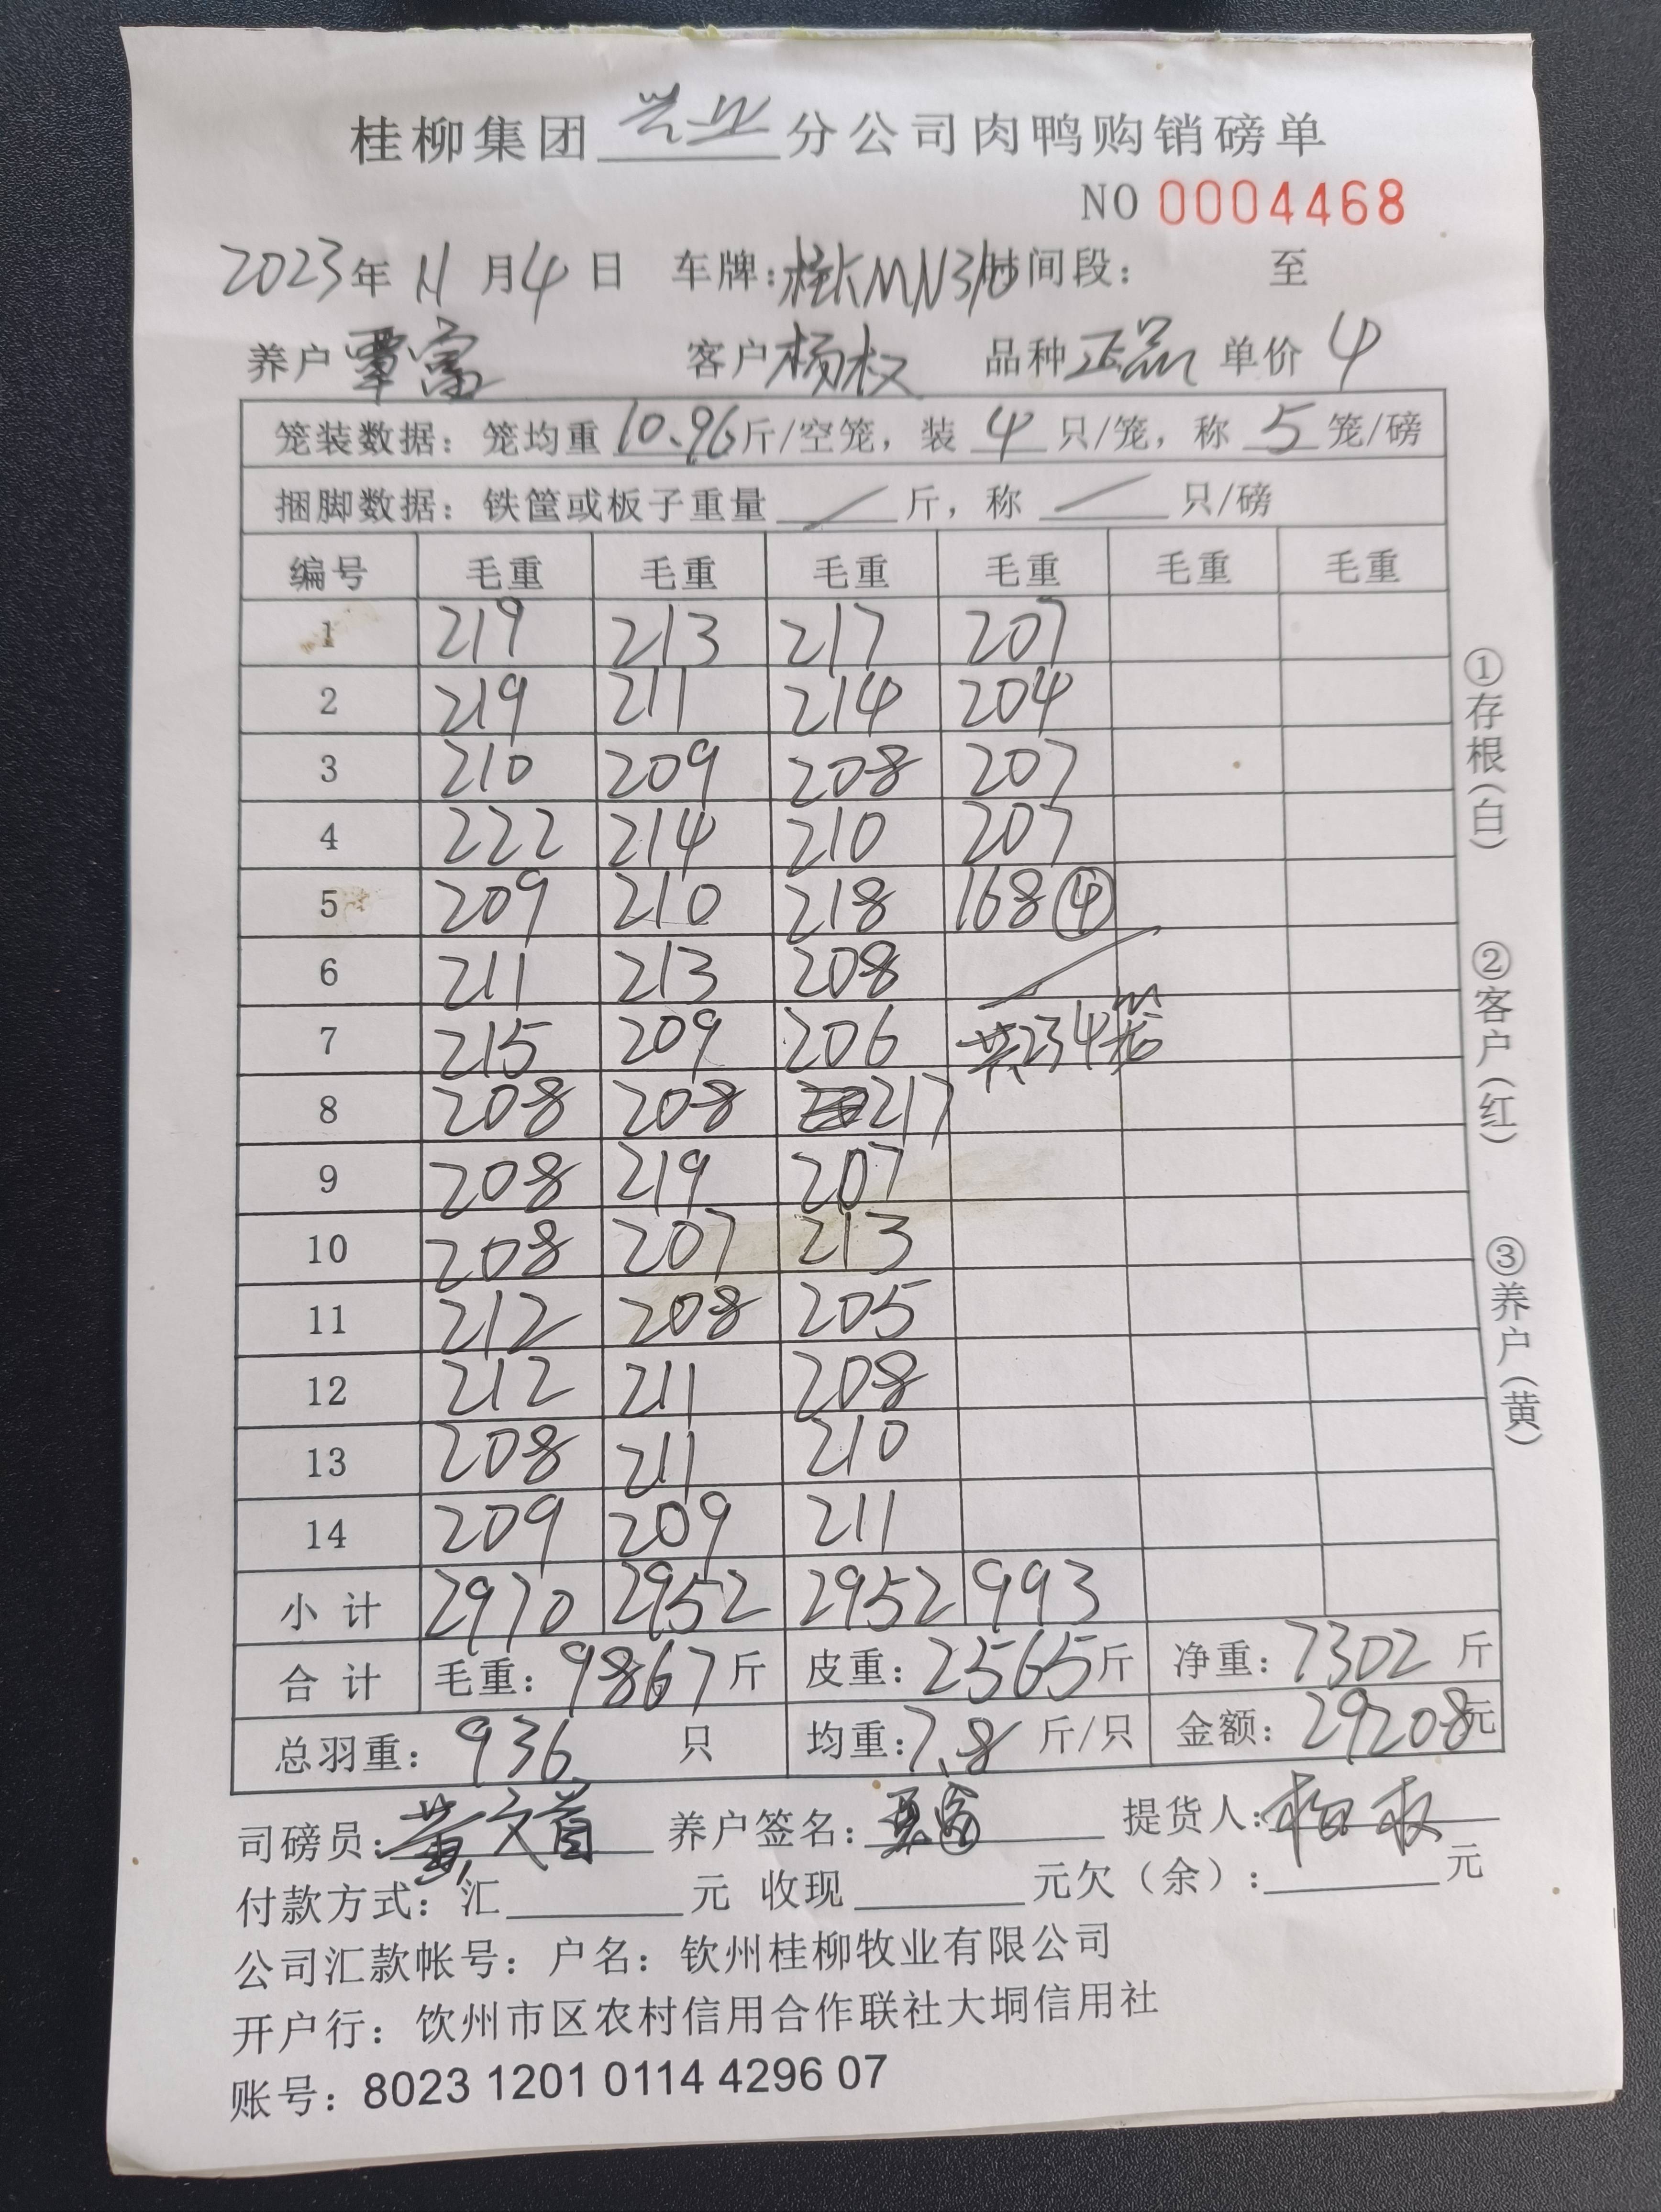 桂柳集团兴业分公司肉鸭购销磅单
NO 0004468
2023年11月4日 车牌：桂KMN310 时间段： 至
养户 覃富 客户 杨权 品种 正品 单价 4
笼装数据：笼均重 10.96 斤/空笼，装 4 只/笼，称 5 笼/磅
捆脚数据：铁筐或板子重量 / 斤，称 / 只/磅
编号 毛重 毛重 毛重 毛重 毛重 毛重
1 219 213 217 207
2 219 211 214 204
3 210 209 208 207
4 222 214 210 207
5 209 210 218 168④
6 211 213 208 /
7 215 209 206 共234笼
8 208 208 217
9 208 219 207
10 208 207 213
11 212 208 205
12 212 211 208
13 208 211 210
14 209 209 211
小计 2970 2952 2952 993
合计 毛重：9867斤 皮重：2565斤 净重：7302斤
总羽重：936 只 均重：7.8 斤/只 金额：29208元
司磅员：黄文首 养户签名：覃富 提货人：杨权
付款方式：汇 元 收现 元欠（余）： 元
公司汇款帐号：户名：钦州桂柳牧业有限公司
开户行：钦州市区农村信用合作联社大垌信用社
账号：8023 1201 0114 4296 07
①存根（白） ②客户（红） ③养户（黄）